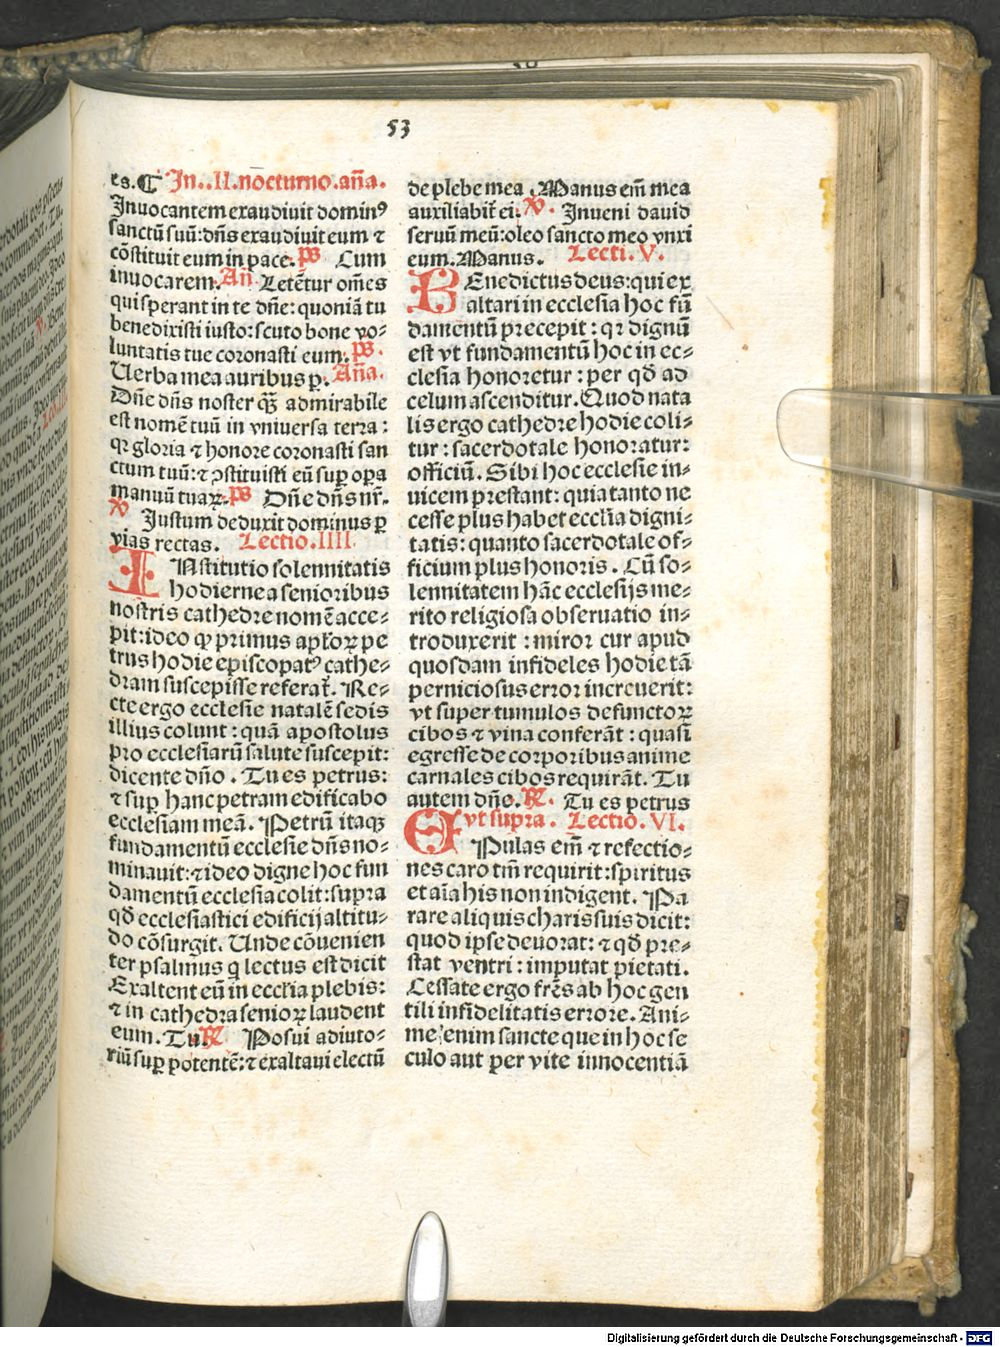 53
es. ¶ In .II. nocturno. an̄a.
Inuocantem exaudiuit dominꝰ
sanctū suū: dn̄s exaudiuit eum ⁊
cōstituit eum in pace. p̄s Cum
inuocarem. An̄ Letētur om̄es
qui sperant in te dn̄e: quoniā tu
benedixisti iusto: scuto bone vo-
luntatis tue coronasti eum. p̄s.
Uerba mea auribus ꝑ. An̄a.
Dn̄e dn̄s noster qꝫ̄ admirabile
est nomē tuū in vniuersa terra:
qꝛ gloria ⁊ honore coronasti san
ctum tuū: ⁊ ꝯstituisti eū suꝑ oꝑa
manuū tuaꝝ. p̄s Dn̄e dn̄s nr̄.
℣ Justum deduxit dominus ꝑ
vias rectas. Lectio .IIII.
INstitutio solennitatis
hodierne a senioribus
nostris cathedre nomē acce-
pit: ideo ꝙ primus apl̄oꝝ pe
trus hodie episcopatꝰ cathe-
dram suscepisse referat̄. Re-
cte ergo ecclesie natalē sedis
illius colunt: quā apostolus
pro ecclesiarū salute suscepit:
dicente dn̄o. Tu es petrus:
⁊ suꝑ hanc petram edificabo
ecclesiam meā. Petrū itaqꝫ
fundamentū ecclesie dn̄s no-
minauit: ⁊ ideo digne hoc fun
damentū ecclesia colit: supra
qd̄ ecclesiastici edificij altitu-
do cōsurgit. Unde cōuenien
ter psalmus q̄ lectus est dicit
Exaltent eū in eccl̄ia plebis:
⁊ in cathedra senioꝝ laudent
eum. Tu ℟ Posui adiuto-
riū suꝑ potentē: ⁊ exaltaui electū
de plebe mea. Manus em̄ mea
auxiliabit̄ ei. ℣. Inueni dauid
seruū meū: oleo sancto meo vnxi
eum. Manus. Lecti. V.
BEnedictus deus: qui ex
altari in ecclesia hoc fū
damentū precepit: qꝛ dignū
est vt fundamentū hoc in ec-
clesia honoretur: per qd̄ ad
celum ascenditur. Quod nata
lis ergo cathedre hodie coli-
tur: sacerdotale honoratur:
officiū. Sibi hoc ecclesie in-
uicem prestant: quia tanto ne
cesse plus habet eccl̄ia digni-
tatis: quanto sacerdotale of-
ficium plus honoris. Cū so-
lennitatem hāc ecclesijs me-
rito religiosa obseruatio in-
troduxerit: miror cur apud
quosdam infideles hodie tā
perniciosus error increuerit:
vt super tumulos defunctoꝝ
cibos ⁊ vina conferāt: quasi
egresse de corporibus anime
carnales cibos requirāt. Tu
autem dn̄e. ℟. Tu es petrus
vt supra. Lectio. VI.
EPulas em̄ ⁊ refectio-
nes caro tm̄ requirit: spiritus
et aīa his non indigent. Pa
rare aliquis charis suis dicit:
quod ipse deuorat: ⁊ qd̄ pre-
stat ventri: imputat pietati.
Cessate ergo fr̄es ab hoc gen
tili infidelitatis errore. Ani-
me enim sancte que in hoc se
culo aut per vite innocentiā
Digitalisierung gefördert durch die Deutsche Forschungsgemeinschaft - DFG